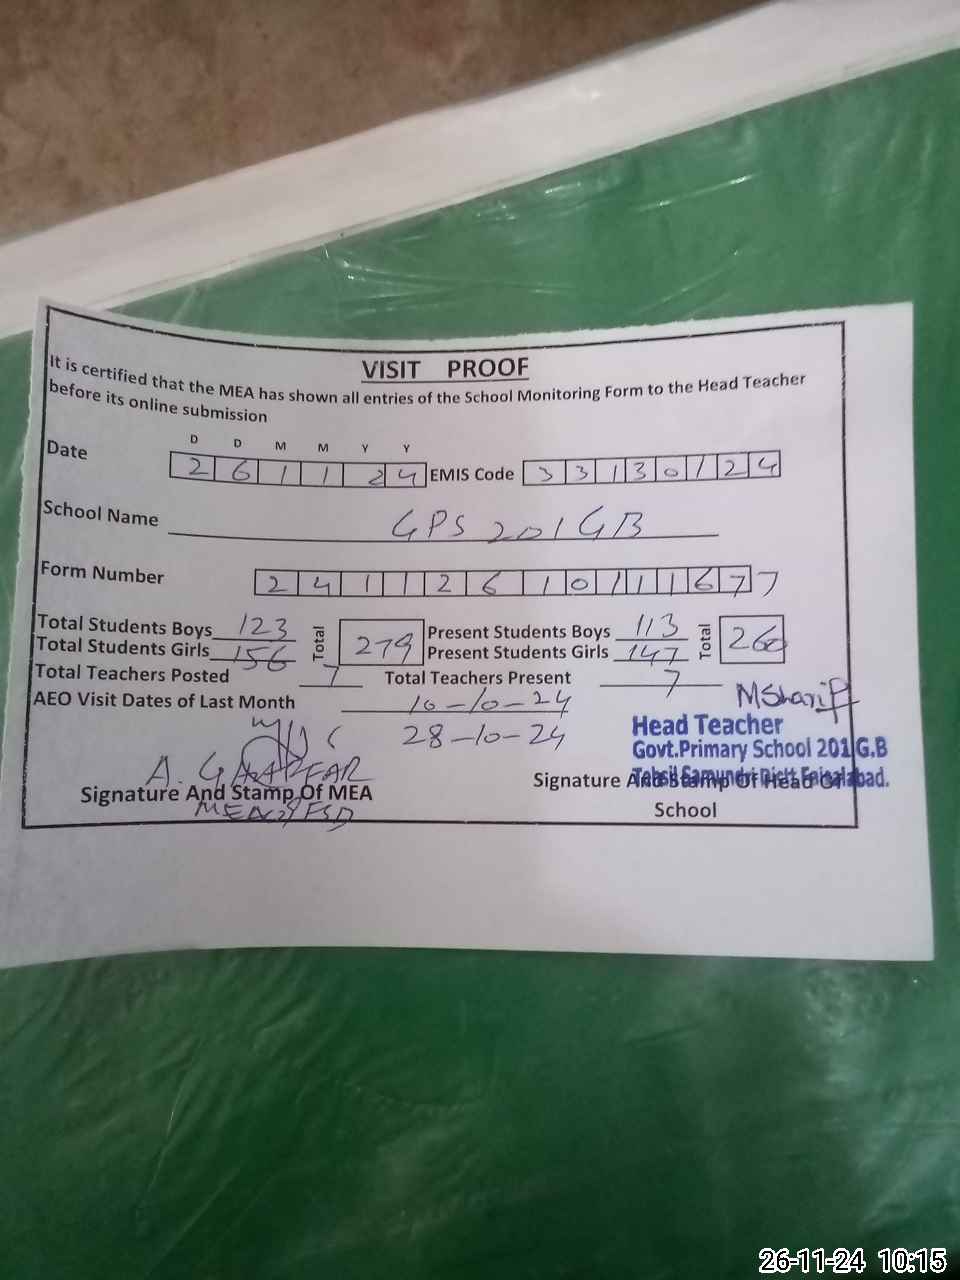 VISIT PROOF
It is certified that the MEA has shown all entries of the School Monitoring Form to the Head Teacher
before its online submission
D D M M Y Y
Date 2 6 1 1 2 4 EMIS Code 3 3 1 3 0 1 2 4
School Name GPS 201 GB
Form Number 2 4 1 1 2 6 1 0 1 1 1 6 7 7
Total Students Boys 123 Total 279 Present Students Boys 113 Total 260
Total Students Girls 156 Present Students Girls 147
Total Teachers Posted 7 Total Teachers Present 7
AEO Visit Dates of Last Month 10-10-24
28-10-24
MSharif
Head Teacher
Govt.Primary School 201 G.B
Tehsil Samundri Distt Faisalabad.
A. GHAFFAR
Signature And Stamp Of MEA
Signature And Stamp Of Head Of
School
26-11-24 10:15